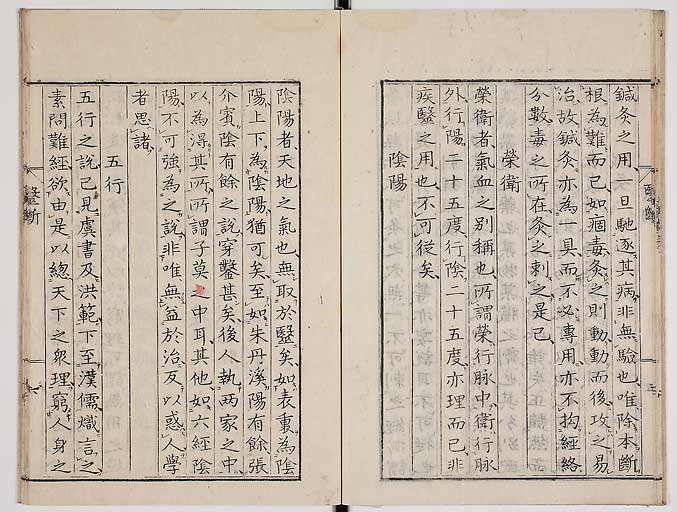 鍼灸之用一旦馳逐其病非無驗也唯除本斷
根為難而已如痼毒灸之則動動而後攻之易
治故鍼灸亦為一具而不必專用亦不拘經絡
分數毒之所在灸之刺之是已
榮衛
榮衛者氣血之別稱也所謂榮行脉中衛行脉
外行陽二十五度行陰二十五度亦理而已非
疾醫之用也不可從矣
陰陽
陰陽者天地之氣也無取於醫矣如表裏為陰
陽上下為陰陽猶可矣至如朱丹溪陽有餘張
介賓陰有餘之說穿鑿甚矣後人執兩家之中
以為得其所所謂子莫之中耳其他如六經陰
陽不可強為之說非唯無益於治反以惑人學
者思諸
五行
五行之說已見虞書及洪範下至漢儒熾言之
素問難經欲由是以總天下之衆理窮人身之
醫斷